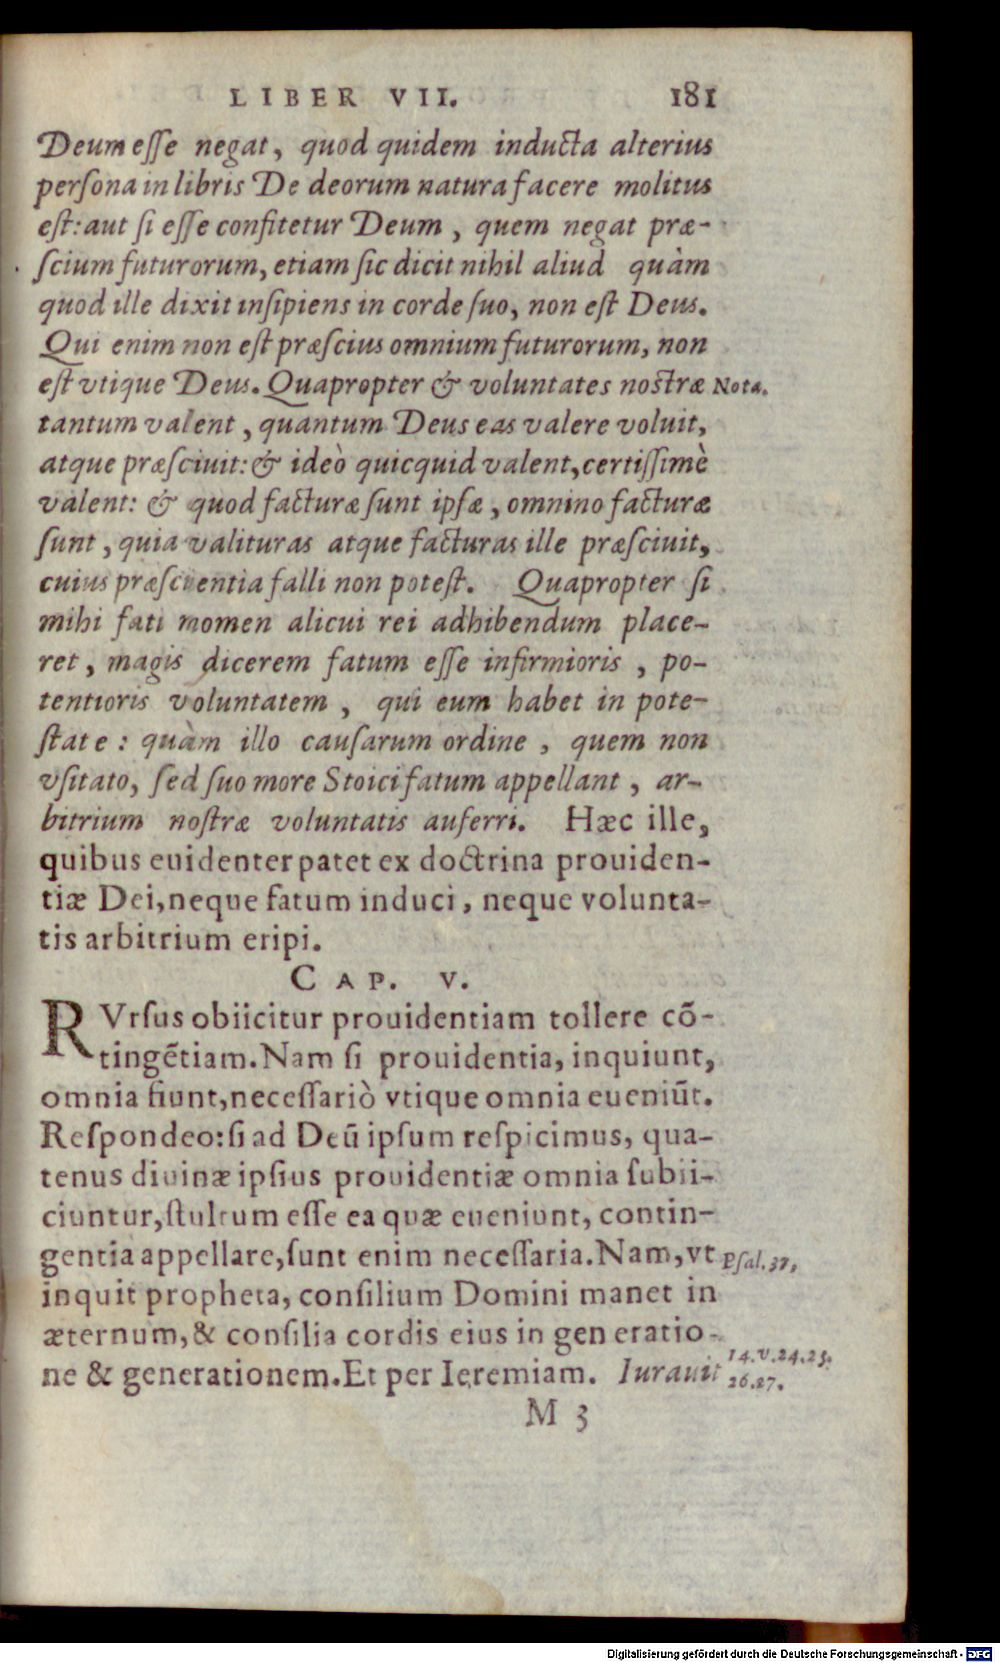 LIBER VII. 181
Deum eſſe negat, quod quidem inducta alterius
perſona in libris De deorum natura facere molitus
eſt: aut ſi eſſe confitetur Deum, quem negat præ-
ſcium futurorum, etiam ſic dicit nihil aliud quàm
quod ille dixit inſipiens in corde ſuo, non eſt Deus.
Qui enim non eſt præſcius omnium futurorum, non
eſt vtique Deus. Quapropter & voluntates noſtræ Nota.
tantum valent, quantum Deus eas valere voluit,
atque præſciuit: & ideò quicquid valent, certiſſimè
valent: & quod facturæ ſunt ipſæ, omnino facturæ
ſunt, quia valituras atque facturas ille præſciuit,
cuius præſcientia falli non poteſt. Quapropter ſi
mihi fati momen alicui rei adhibendum place-
ret, magis dicerem fatum eſſe infirmioris, po-
tentioris voluntatem, qui eum habet in pote-
ſtate: quàm illo cauſarum ordine, quem non
vſitato, ſed ſuo more Stoici fatum appellant, ar-
bitrium noſtræ voluntatis auferri. Hæc ille,
quibus euidenter patet ex doctrina prouiden-
tiæ Dei, neque fatum induci, neque volunta-
tis arbitrium eripi.
CAP. V.
RVrſus obiicitur prouidentiam tollere cõ-
tingẽtiam. Nam ſi prouidentia, inquiunt,
omnia fiunt, neceſſariò vtique omnia eueniũt.
Reſpondeo: ſi ad Deũ ipſum reſpicimus, qua-
tenus diuinæ ipſius prouidentiæ omnia ſubii-
ciuntur, ſtultum eſſe ea quæ eueniunt, contin-
gentia appellare, ſunt enim neceſſaria. Nam, vt Pſal. 37,
inquit propheta, conſilium Domini manet in
æternum, & conſilia cordis eius in gen eratio-
ne & generationem. Et per Ieremiam. Iurauit 14. v. 24. 25.
26. 27.
M 3
Digitalisierung gefördert durch die Deutsche Forschungsgemeinschaft - DFG